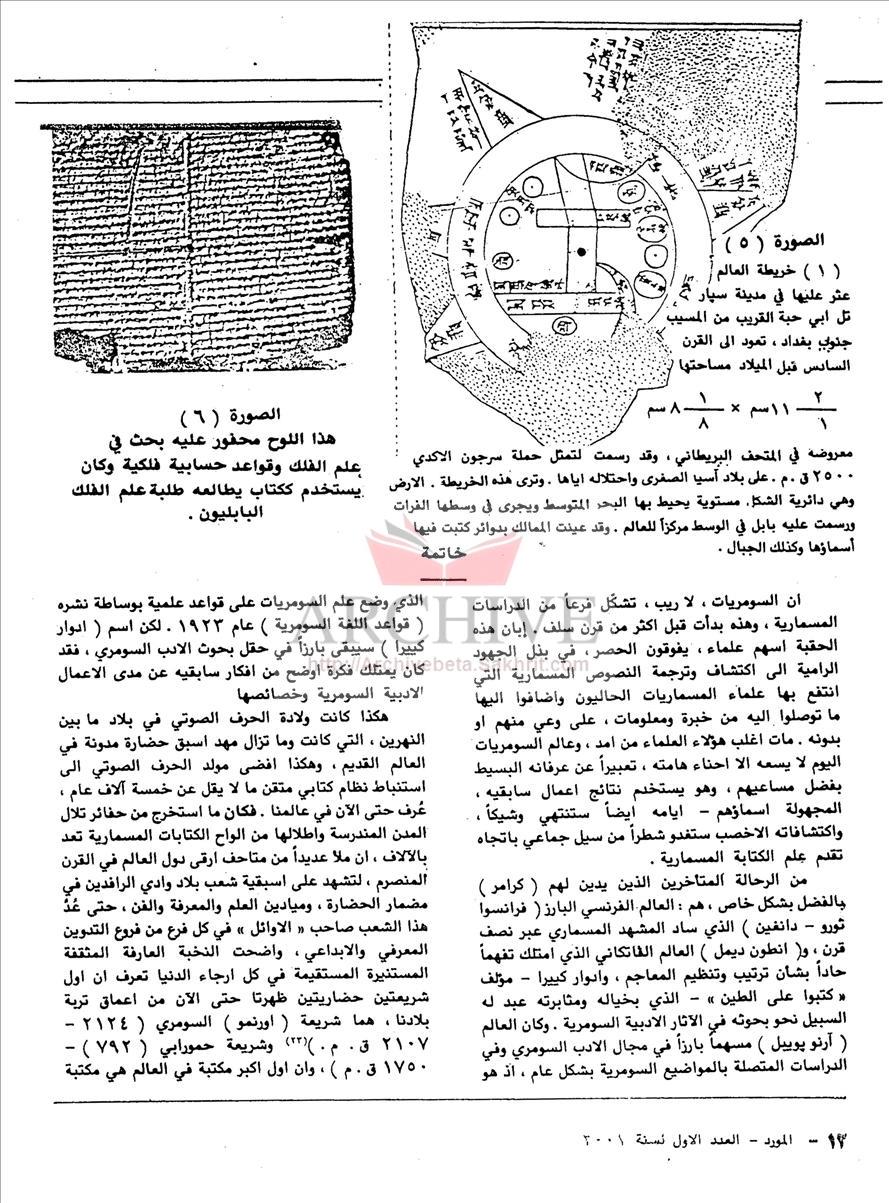 الصورة ( ٥ )
( ١ ) خريطة العالم
عثر عليها في مدينة سبار
تل ابي حبة القريب من المسيب
جنوب بغداد ، تعود الى القرن
السادس قبل الميلاد مساحتها
٢/١ ١١سم × ١/٨ ٨ سم
معروضه في المتحف البريطاني ، وقد رسمت لتمثل حملة سرجون الاكدي
٢٥٠٠ ق . م . على بلاد آسيا الصغرى واحتلاله اياها . وترى هذه الخريطة . الارض
وهي دائرية الشكل مستوية يحيط بها البحر المتوسط ويجرى في وسطها الفرات
ورسمت عليه بابل في الوسط مركزاً للعالم . وقد عينت الممالك بدوائر كتبت فيها
أسماؤها وكذلك الجبال .
الصورة ( ٦ )
هذا اللوح محفور عليه بحث في
علم الفلك وقواعد حسابية فلكية وكان
يستخدم ككتاب يطالعه طلبة علم الفلك
البابليون .
خاتمة
ARCHIVE
http://Archivebeta.Sakhrit.com
أن السومريات ، لا ريب ، تشكّل فرعاً من الدراسات
المسمارية ، وهذه بدأت قبل اكثر من قرن سلف . إبان هذه
الحقبة اسهم علماء ، يفوقون الحصر ، في بذل الجهود
الرامية الى اكتشاف وترجمة النصوص المسمارية التي
انتفع بها علماء المسماريات الحاليون واضافوا اليها
ما توصلوا اليه من خبرة ومعلومات ، على وعي منهم او
بدونه . مات اغلب هؤلاء العلماء من امد ، وعالم السومريات
اليوم لا يسعه الا احناء هامته ، تعبيراً عن عرفانه البسيط
بفضل مساعيهم ، وهو يستخدم نتائج اعمال سابقيه ،
المجهولة اسماؤهم – ايامه ايضاً ستنتهي وشيكاً ،
واكتشافاته الاخصب ستغدو شطراً من سيل جماعي باتجاه
تقدم عِلم الكتابة المسمارية .
من الرحالة المتأخرين الذين يدين لهم ( كرامر )
بالفضل بشكل خاص ، هم : العالم الفرنسي البارز ( فرانسوا
ثورو – دانغين ) الذي ساد المشهد المسماري عبر نصف
قرن ، و( انطون ديمل ) العالم الفاتكاني الذي امتلك تفهماً
حاداً بشأن ترتيب وتنظيم المعاجم ، وادوار كييرا – مؤلف
« كتبوا على الطين » – الذي بخياله ومثابرته عبد له
السبيل نحو بحوثه في الآثار الادبية السومرية . وكان العالم
( آرنو پوپيل ) مسهماً بارزاً في مجال الادب السومري وفي
الدراسات المتصلة بالمواضيع السومرية بشكل عام ، اذ هو
الذي وضع علم السومريات على قواعد علمية بوساطة نشره
( قواعد اللغة السومرية ) عام ١٩٢٣ . لكن اسم ( ادوار
كييرا ) سيبقى بارزاً في حقل بحوث الادب السومري ، فقد
كان يمتلك فكرة اوضح من افكار سابقيه عن مدى الاعمال
الادبية السومرية وخصائصها
هكذا كانت ولادة الحرف الصوتي في بلاد ما بين
النهرين ، التي كانت وما تزال مهد اسبق حضارة مدونة في
العالم القديم ، وهكذا افضى مولد الحرف الصوتي الى
استنباط نظام كتابي متقن ما لا يقل عن خمسة آلاف عام ،
عُرف حتى الآن في عالمنا . فكان ما استخرج من حفائر تلال
المدن المندرسة واطلالها من الواح الكتابات المسمارية تعد
بالآلاف ، ان ملأ عديداً من متاحف ارقى دول العالم في القرن
المنصرم ، لتشهد على اسبقية شعب بلاد وادي الرافدين في
مضمار الحضارة ، وميادين العلم والمعرفة والفن ، حتى عُدَّ
هذا الشعب صاحب « الاوائل » في كل فرع من فروع التدوين
المعرفي والابداعي ، واضحت النخبة العارفة المثقفة
المستنيرة المستقيمة في كل ارجاء الدنيا تعرف ان اول
شريعتين حضاريتين ظهرتا حتى الآن من اعماق تربة
بلادنا ، هما شريعة ( اورنمو ) السومري ( ٢١٢٤ –
٢١٠٧ ق . م . )(٢٣) وشريعة حمورابي ( ٧٩٢ ) –
١٧٥٠ ق.م ) ، وان اول اكبر مكتبة في العالم هي مكتبة
١٢ – المورد – العدد الاول لسنة ٢٠٠١